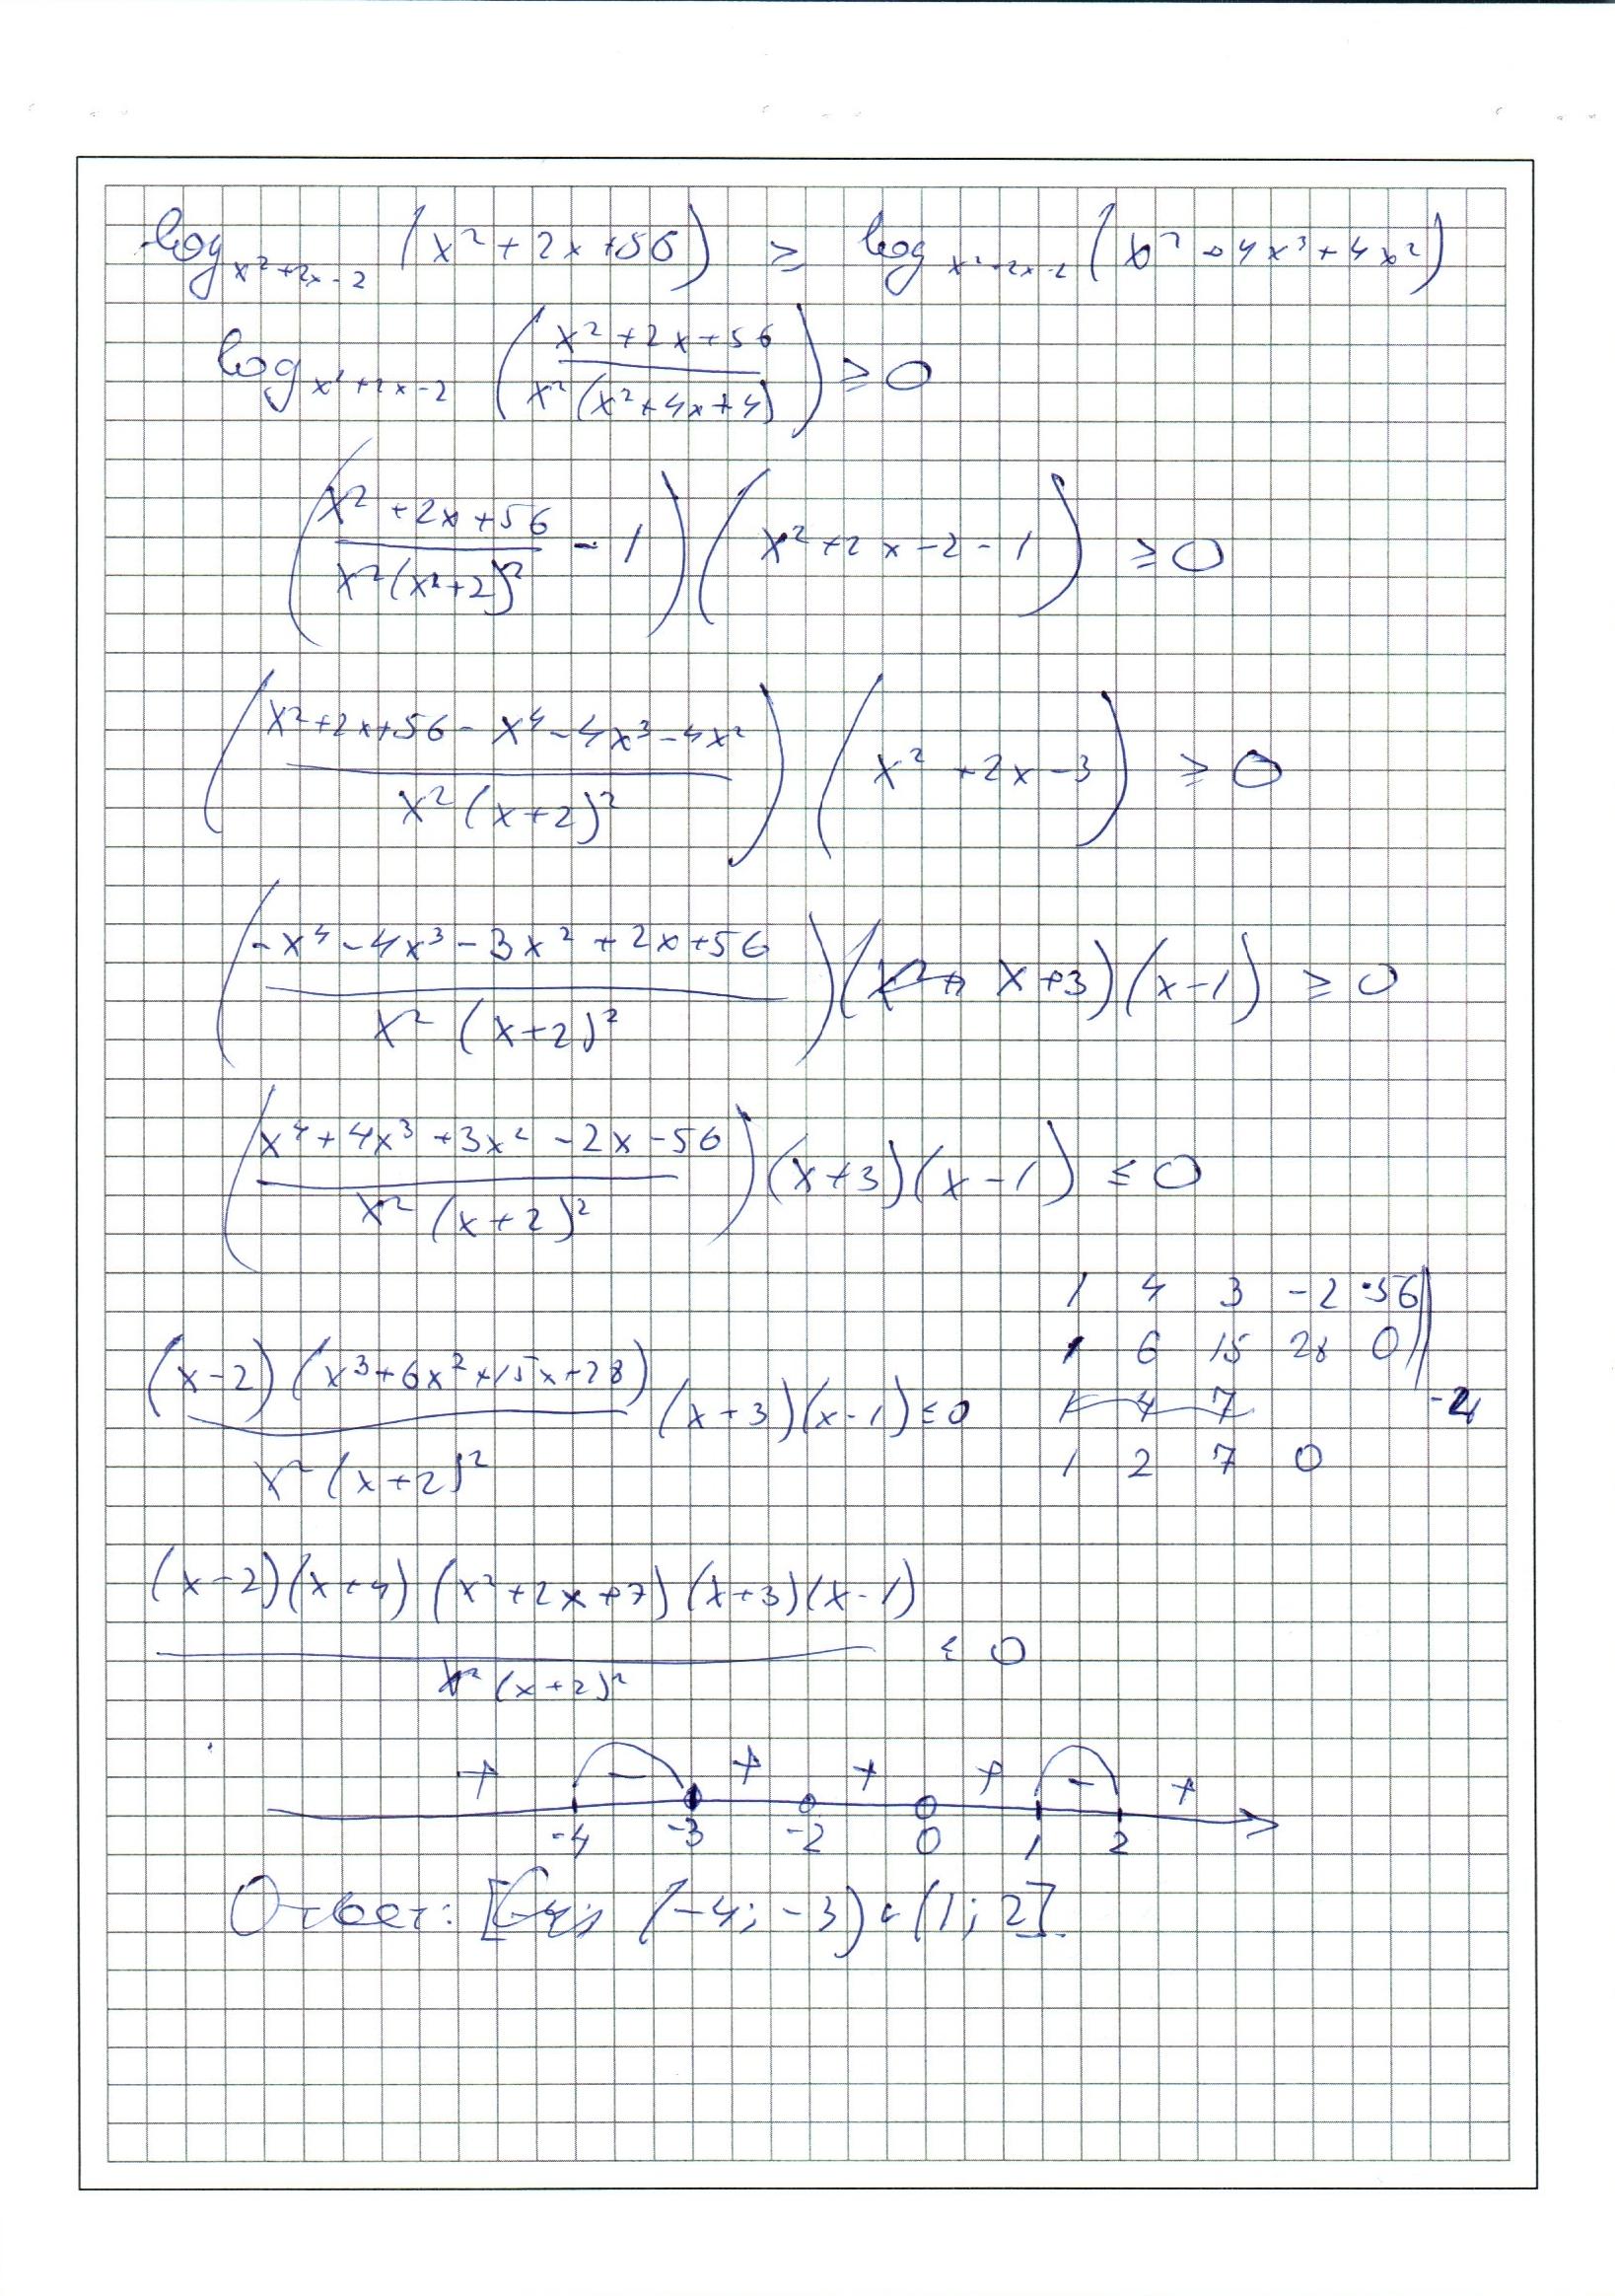 log_{x²+2x-2} (x²+2x+56) ≥ log_{x²+2x-2} (x² + 4x³ + 4x²)
log_{x²+2x-2} ((x²+2x+56)/(x²(x²+4x+4))) ≥ 0
((x²+2x+56)/(x²(x²+2)²) - 1)(x²+2x-2-1) ≥ 0
((x²+2x+56-x⁴-4x³-4x²)/(x²(x+2)²))(x²+2x-3) ≥ 0
((-x⁴-4x³-3x²+2x+56)/(x²(x+2)²))(x+3)(x-1) ≥ 0
((x⁴+4x³+3x²-2x-56)/(x²(x+2)²))(x+3)(x-1) ≤ 0
1 4 3 -2 -56
1 6 15 28 0
1 4 7
1 2 7 0
-4
((x-2)(x³+6x²+15x+28))/(x²(x+2)²) (x+3)(x-1) ≤ 0
((x-2)(x+4)(x²+2x+7)(x+3)(x-1))/(x²(x+2)²) ≤ 0
+ - + + + - +
-4 -3 -2 0 1 2
Ответ: (-4; -3) ∪ (1; 2].